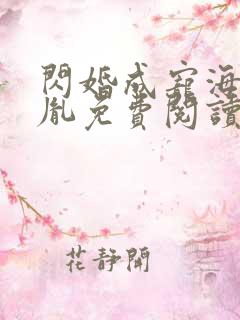 閃婚成寵海
胤免費閱讀
花靜開